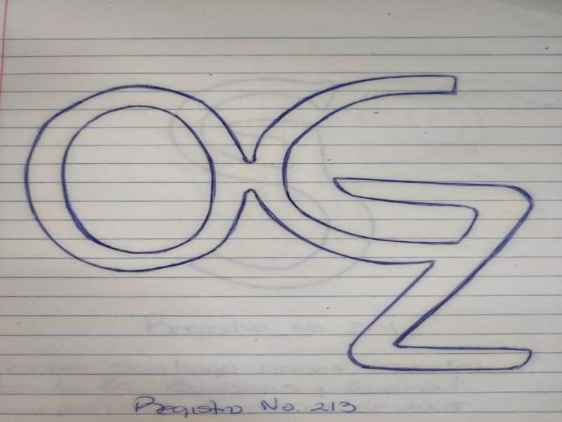 OGZ
Registro No. 213